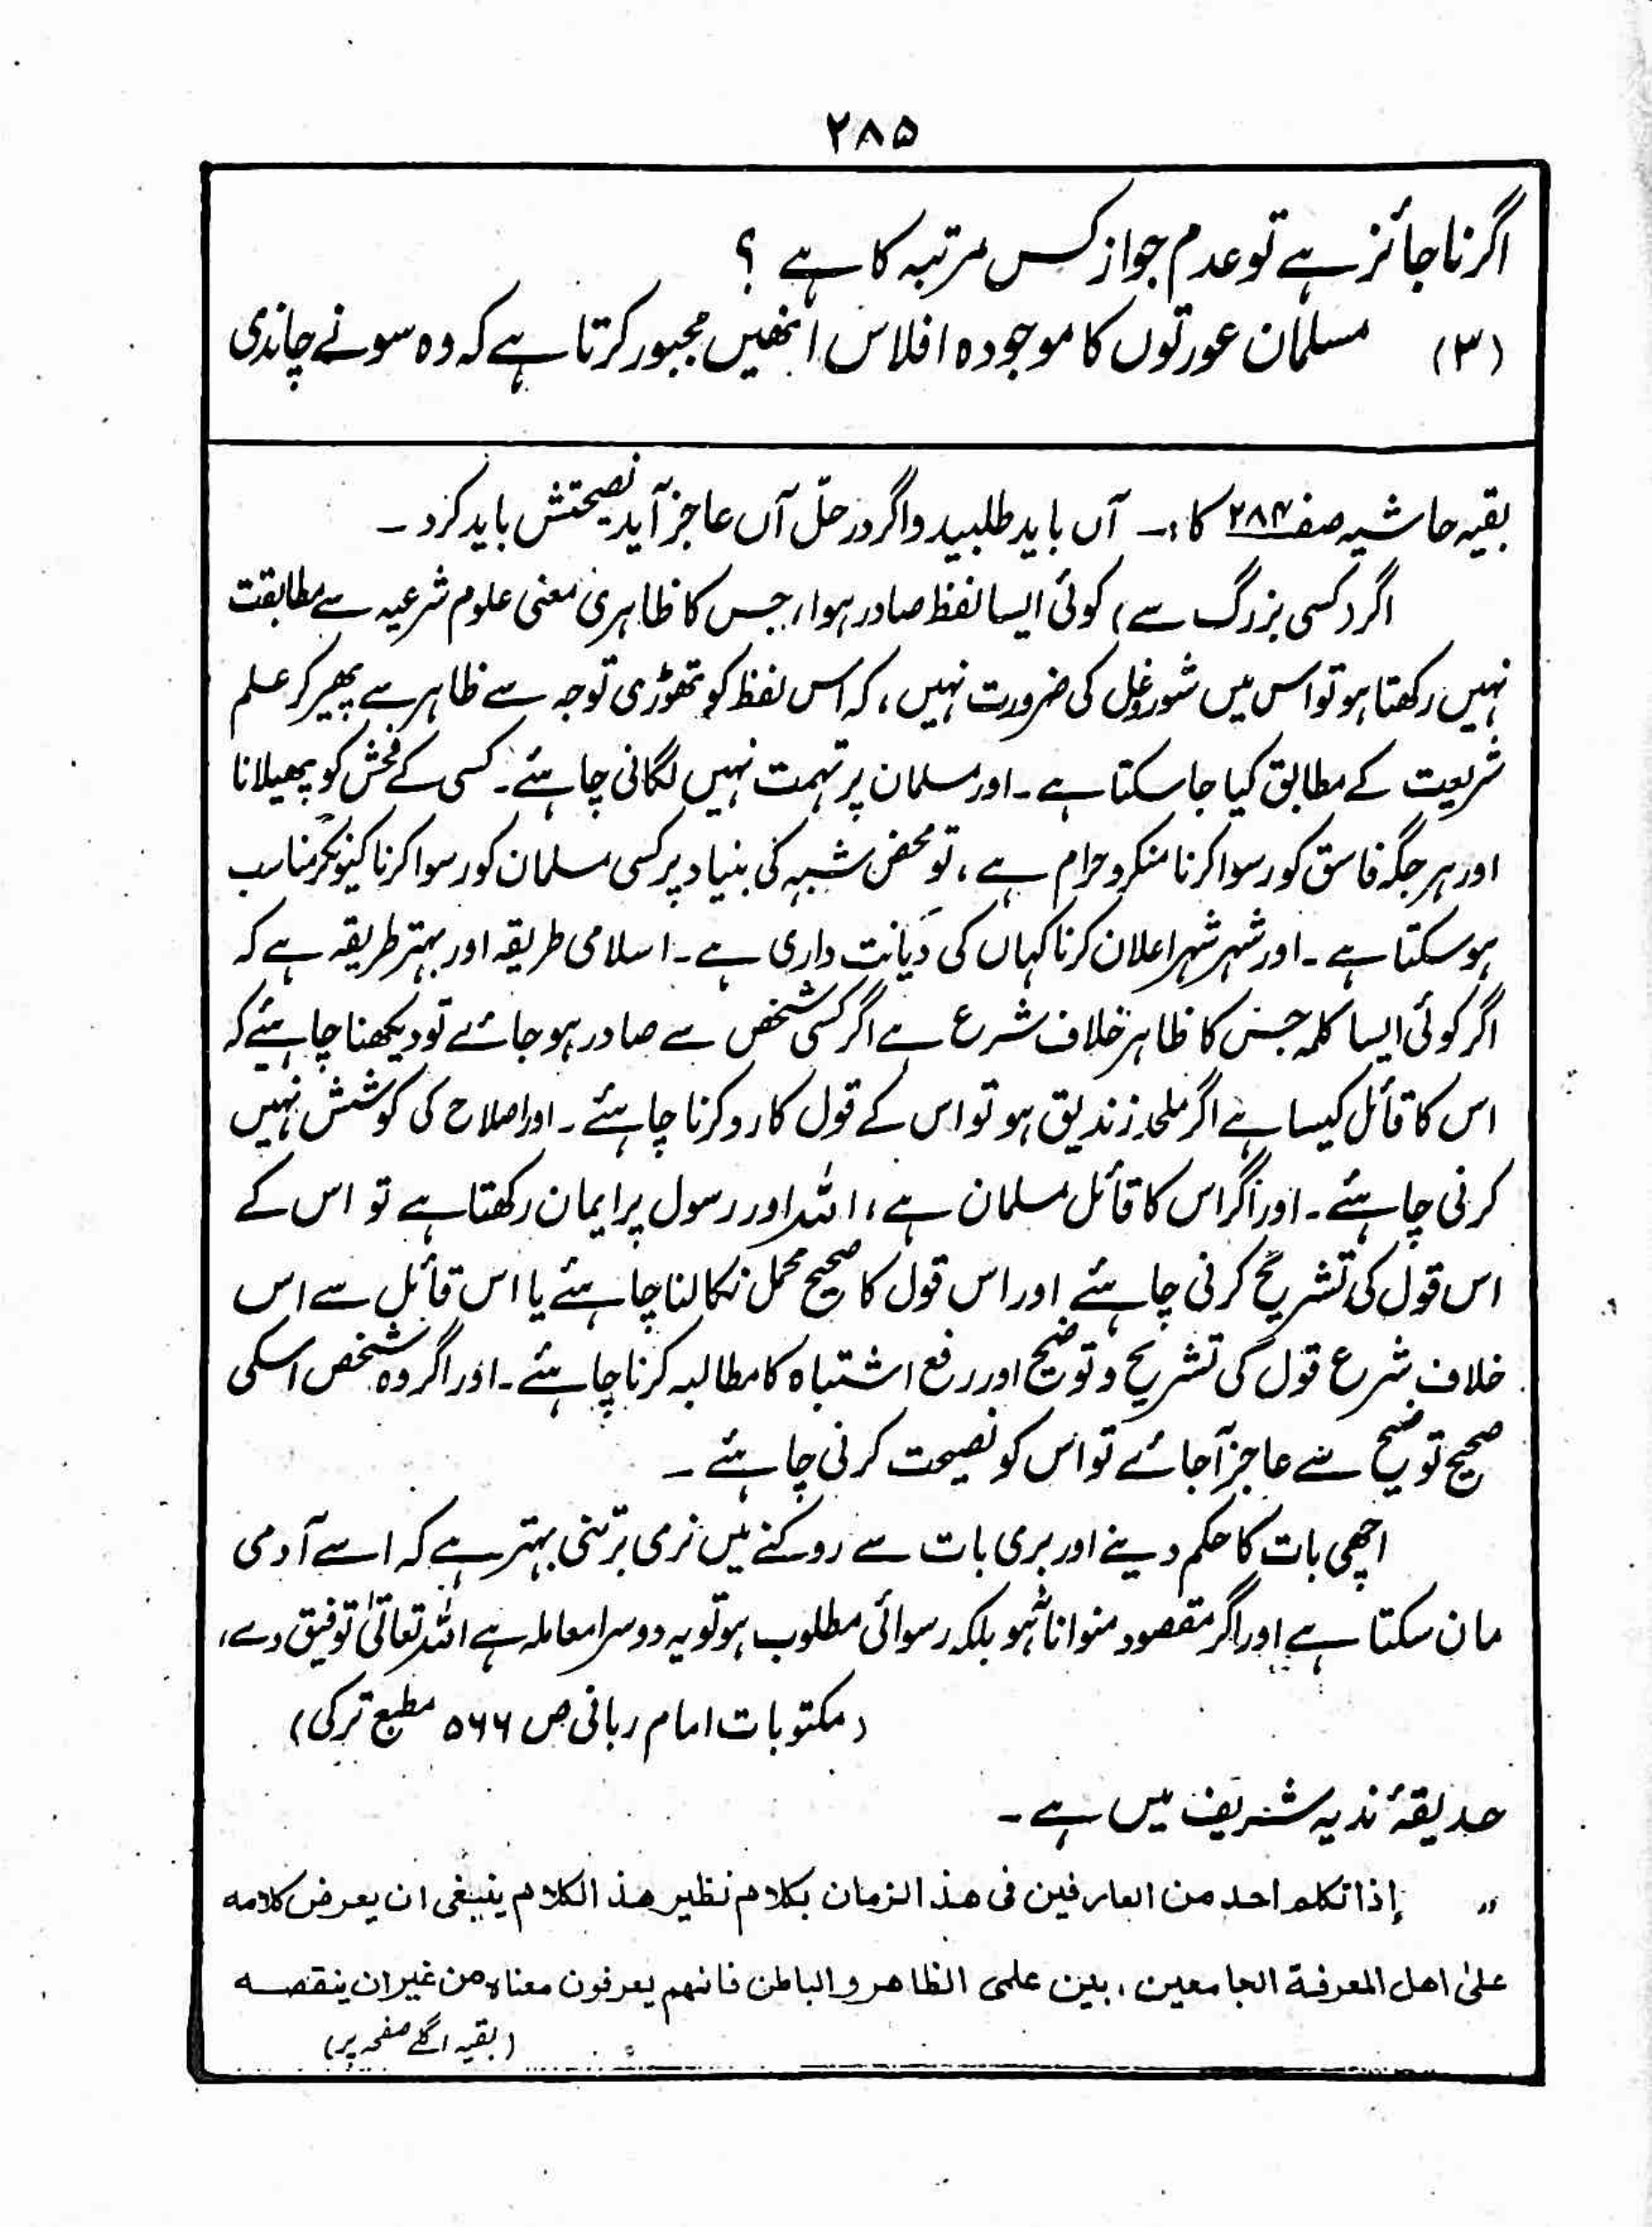 ۲۸۵
اگر ناجائز ہے تو عدم جواز کس مرتبہ کا ہے ؟
(۳) مسلمان عورتوں کا موجودہ افلاس انھیں مجبور کرتا ہے کہ وہ سونے چاندی
بقیہ حاشیہ صفہ ۲۸۴ کا :۔ آں باید طلبید واگر در حلّ آں عاجز آید نصیحتش باید کرد ۔
اگر (کسی بزرگ سے) کوئی ایسا لفظ صادر ہوا ، جس کا ظاہری معنی علوم شرعیہ سے مطابقت
نہیں رکھتا ہو تو اس میں شور و غل کی ضرورت نہیں ، کہ اس لفظ کو تھوڑی توجہ سے ظاہر سے پھیر کر علم
شریعت کے مطابق کیا جا سکتا ہے ۔ اور مسلمان پر تہمت نہیں لگانی چاہئے ۔ کسی کے فحش کو پھیلانا
اور ہر جگہ فاسق کو رسوا کرنا منکر و حرام ہے ، تو محض شبہ کی بنیاد پر کسی مسلمان کو رسوا کرنا کیونکر مناسب
ہو سکتا ہے ۔ اور شہر شہر اعلان کرنا کہاں کی دیانت داری ہے ۔ اسلامی طریقہ اور بہتر طریقہ ہے کہ
اگر کوئی ایسا کلمہ جس کا ظاہر خلاف شرع ہے اگر کسی شخص سے صادر ہو جائے تو دیکھنا چاہیئے کہ
اس کا قائل کیسا ہے اگر ملحد زندیق ہو تو اس کے قول کا رد کرنا چاہئے ۔ اور اصلاح کی کوشش نہیں
کرنی چاہئے ۔ اور اگر اس کا قائل مسلمان ہے ، اللہ اور رسول پر ایمان رکھتا ہے تو اس کے
اس قول کی تشریح کرنی چاہئے اور اس قول کا صحیح محمل نکالنا چاہئے یا اس قائل سے اس
خلاف شرع قول کی تشریح و توضیح اور رفع اشتباہ کا مطالبہ کرنا چاہئے ۔ اور اگر وہ شخص اسکی
صحیح توضیح سے عاجز آجائے تو اس کو نصیحت کرنی چاہئے ۔
اچھی بات کا حکم دینے اور بری بات سے روکنے میں نرمی برتنی بہتر ہے کہ اسے آدمی
مان سکتا ہے اور اگر مقصود منوانا نہ ہو بلکہ رسوائی مطلوب ہو تو یہ دوسرا معاملہ ہے اللہ تعالیٰ توفیق دے ،
(مکتوبات امام ربانی ص ۵۶۶ مطبع ترکی)
حدیقۂ ندیہ شریف میں ہے ۔
" إذا تکلم احد من العارفین فی هذ الزمان بکلام نظیر هذ الکلام ینبغی ان یعرض کلامه
علیٰ اهل المعرفة الجامعین ، بین علمی الظاهر و الباطن فانهم یعرفون معناه من غیر ان ینقصه
(بقیہ اگلے صفحہ پر)